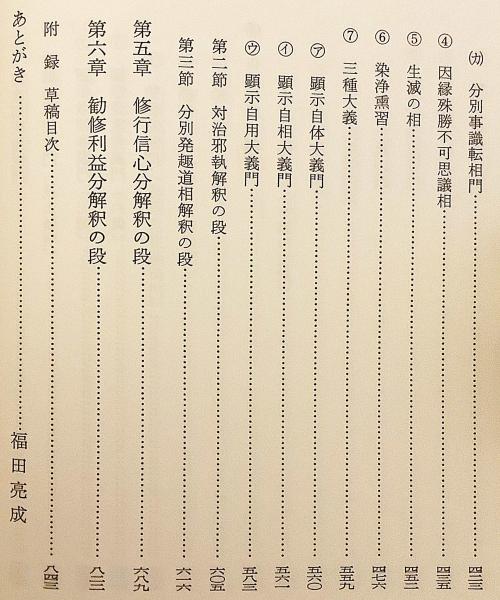 ㋕ 分別事識転相門 四二三
④ 因縁殊勝不可思議相 四三五
⑤ 生滅の相 四五二
⑥ 染浄熏習 四七六
⑦ 三種大義 五五九
㋐ 顕示自体大義門 五六〇
㋑ 顕示自相大義門 五六一
㋒ 顕示自用大義門 五八三
第二節 対治邪執解釈の段 六〇五
第三節 分別発趣道相解釈の段 六一六
第五章 修行信心分解釈の段 六八九
第六章 勧修利益分解釈の段 八二二
附録 草稿目次 八四三
あとがき 福田亮成